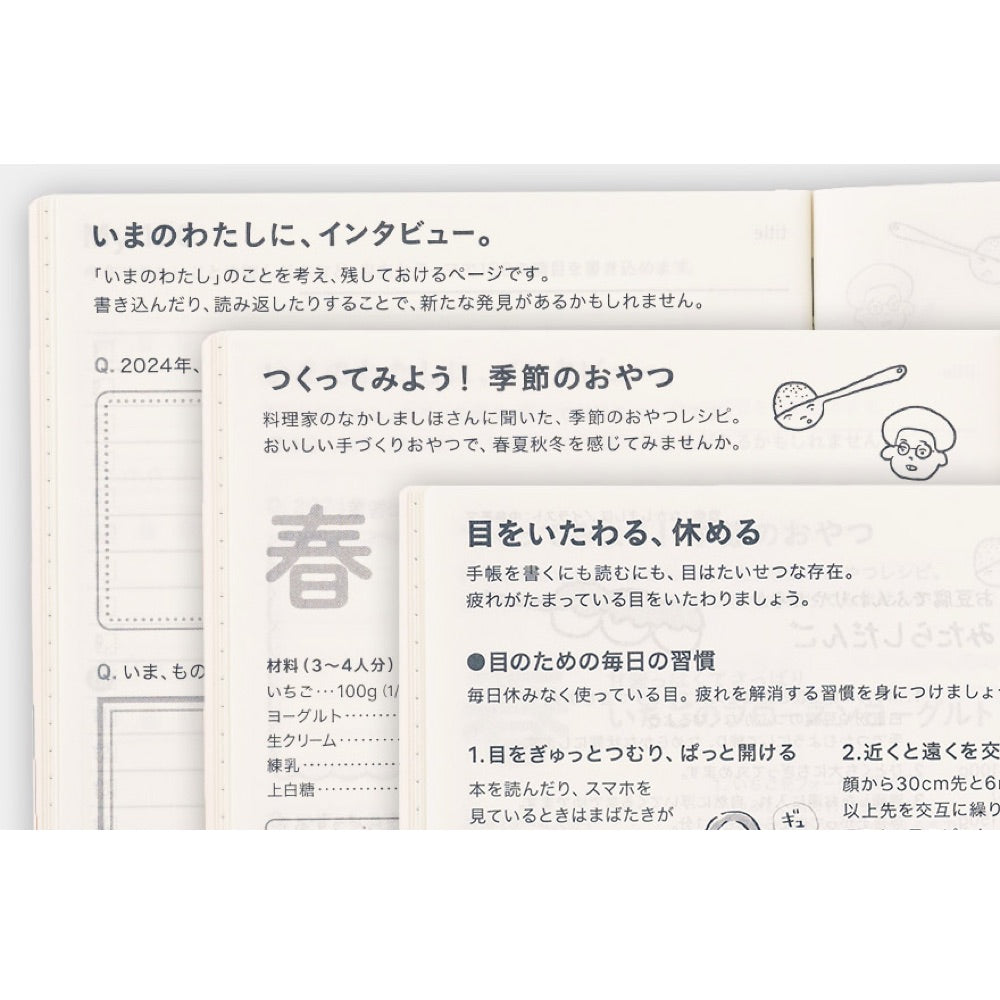 いまのわたしに、インタビュー。
「いまのわたし」のことを考え、残しておけるページです。
書き込んだり、読み返したりすることで、新たな発見があるかもしれません。
Q. 2024年、
Q. いま、もの
つくってみよう！ 季節のおやつ
料理家のなかしましほさんに聞いた、季節のおやつレシピ。
おいしい手づくりおやつで、春夏秋冬を感じてみませんか。
春
材料（3〜4人分）
いちご…100g（1/
ヨーグルト………
生クリーム………
練乳………
上白糖………
目をいたわる、休める
手帳を書くにも読むにも、目はたいせつな存在。
疲れがたまっている目をいたわりましょう。
●目のための毎日の習慣
毎日休みなく使っている目。疲れを解消する習慣を身につけましょ
1.目をぎゅっとつむり、ぱっと開ける
本を読んだり、スマホを
見ているときはまばたきが
ギュ
2.近くと遠くを交
顔から30cm先と6
以上先を交互に繰り